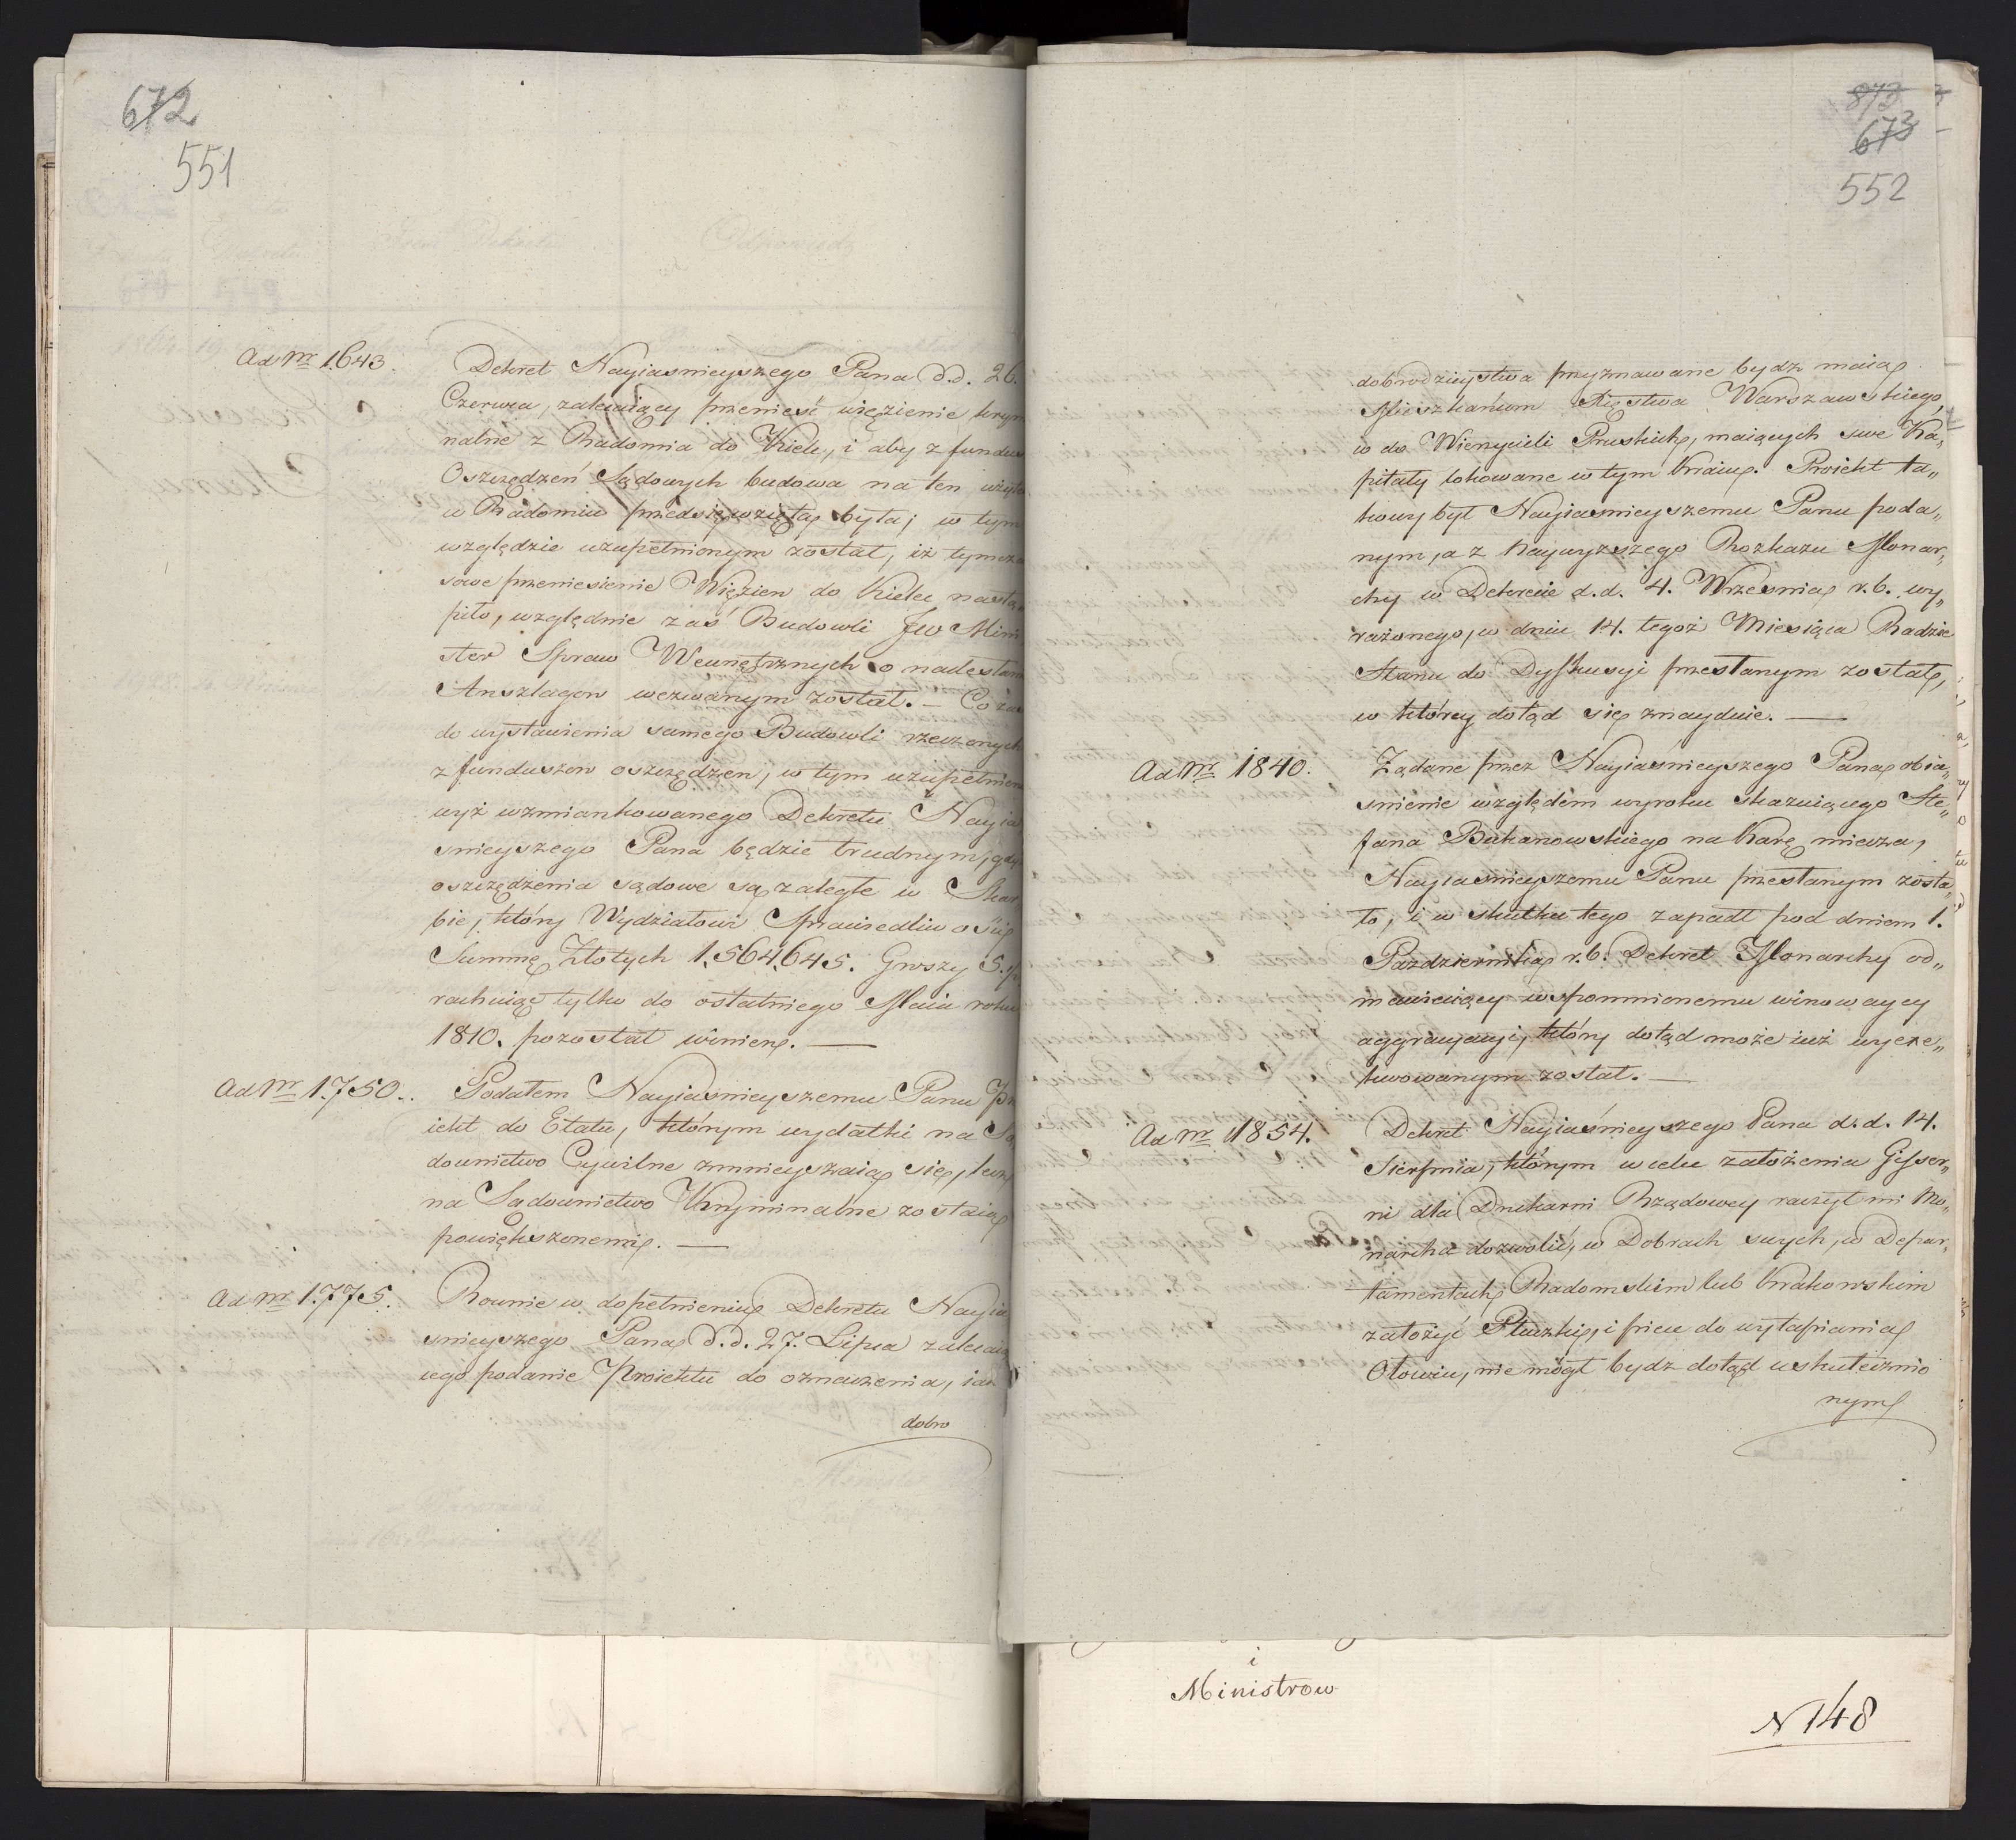 672
551
Ad Nr 1643.
Dekret Nayiasnieyszego Pana d.d. 26.
Czerwca, zalecaiący przenieść więzienie krym
nalne z Radomia do Kielc, i aby z fundus
Oszczędzeń Sądowych budowa na ten użyte
w Radomiu przedsięwzięta była; w tym
względzie uzupełnionym został, iż tymcza
sowe przeniesienie Więzien do Kielc nastą
piło, względnie zaś Budowli JW Mini
ster Spraw Wewnętrznych o nadesłan
Anszlagow wezwanym został. — Co zaś
do wystawienia samego Budowli rzeczonych
z funduszow oszczędzen, w tym uzupełnien
wyż wzmiankowanego Dekretu Nayia
snieyszego Pana będzie trudnym, gdy
oszczędzenia sądowe są zaległe w Skar
bie, który Wydziałowi Sprawiedliwości
Summę Złotych 1,564,645. Groszy 5.
rachuiąc tylko do ostatniego Maia roku
1810. pozostał winien. —
Ad Nr 1750.
Podałem Nayiasnieyszemu Panu Pro
iekt do Etatu, którym wydatki na Są
downictwo Cywilne zmnieyszaią się, lecz
na Sądownictwo Kryminalne zostaią
powiększonemi. —
Ad Nr 1775.
Rownie w dopełnieniu Dekretu Nayia
snieyszego Pana d.d. 27. Lipca zalecaią
cego podanie Proiektu do oznaczenia, iak
dobro
873
673
552
dobrodzieystwa przyznawane bydz maią
Mieszkańcom Xięstwa Warszawskiego,
co do Wierzycieli Pruskich, maiących swe Ka„
pitały lokowane w tym kraiu. Proiekt ta„
kowy był Nayiasnieyszemu Panu poda„
nym, a z Naywyższego Rozkazu Monar„
chy w Dekrecie d.d. 4. Wrzesnia r.b. wy„
rażonego, w dniu 14. tegoż Miesiąca Radzie
Stanu do Dyskusyi przesłanym został,
w którey dotąd się znayduie. —
Ad Nr 1840.
Żądane przez Nayiaśnieyszego Pana obia„
snienie względem wyroku skazuiącego Ste„
fana Bukanowskiego na karę miecza,
Nayiasnieyszemu Panu przesłanym zosta„
ło, i w skutku tego zapadł pod dniem 1.
Pazdziernika r.b. Dekret Monarchy od„
mawiaiący wspomnionemu winowaycy
aggraciacyi, który dotąd może iuż wyexe„
kwowanym został. —
Ad Nr 1854.
Dekret Nayiaśnieyszego Pana d.d. 14.
Sierpnia, którym w celu założenia Gisser„
ni dla Drukarni Rządowey raczył mi Mo„
narcha dozwolić, w Dobrach swych, w Depar„
tamentach Radomskim lub Krakowskim
założyć Płuczkę, i piece do wytapiania
Ołowiu, nie mógł bydz dotąd uskutecznio
nym
i
Ministrow
N 148